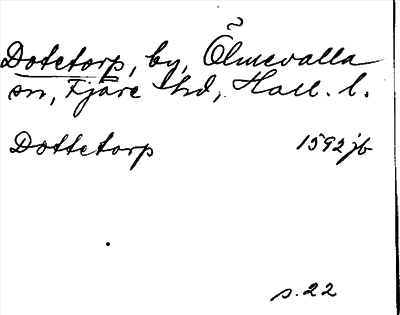 Dotetorp, by, Ölmevalla
sn, Fjäre hd, Hall. l.
Dottetorp 1592 jb
s. 22